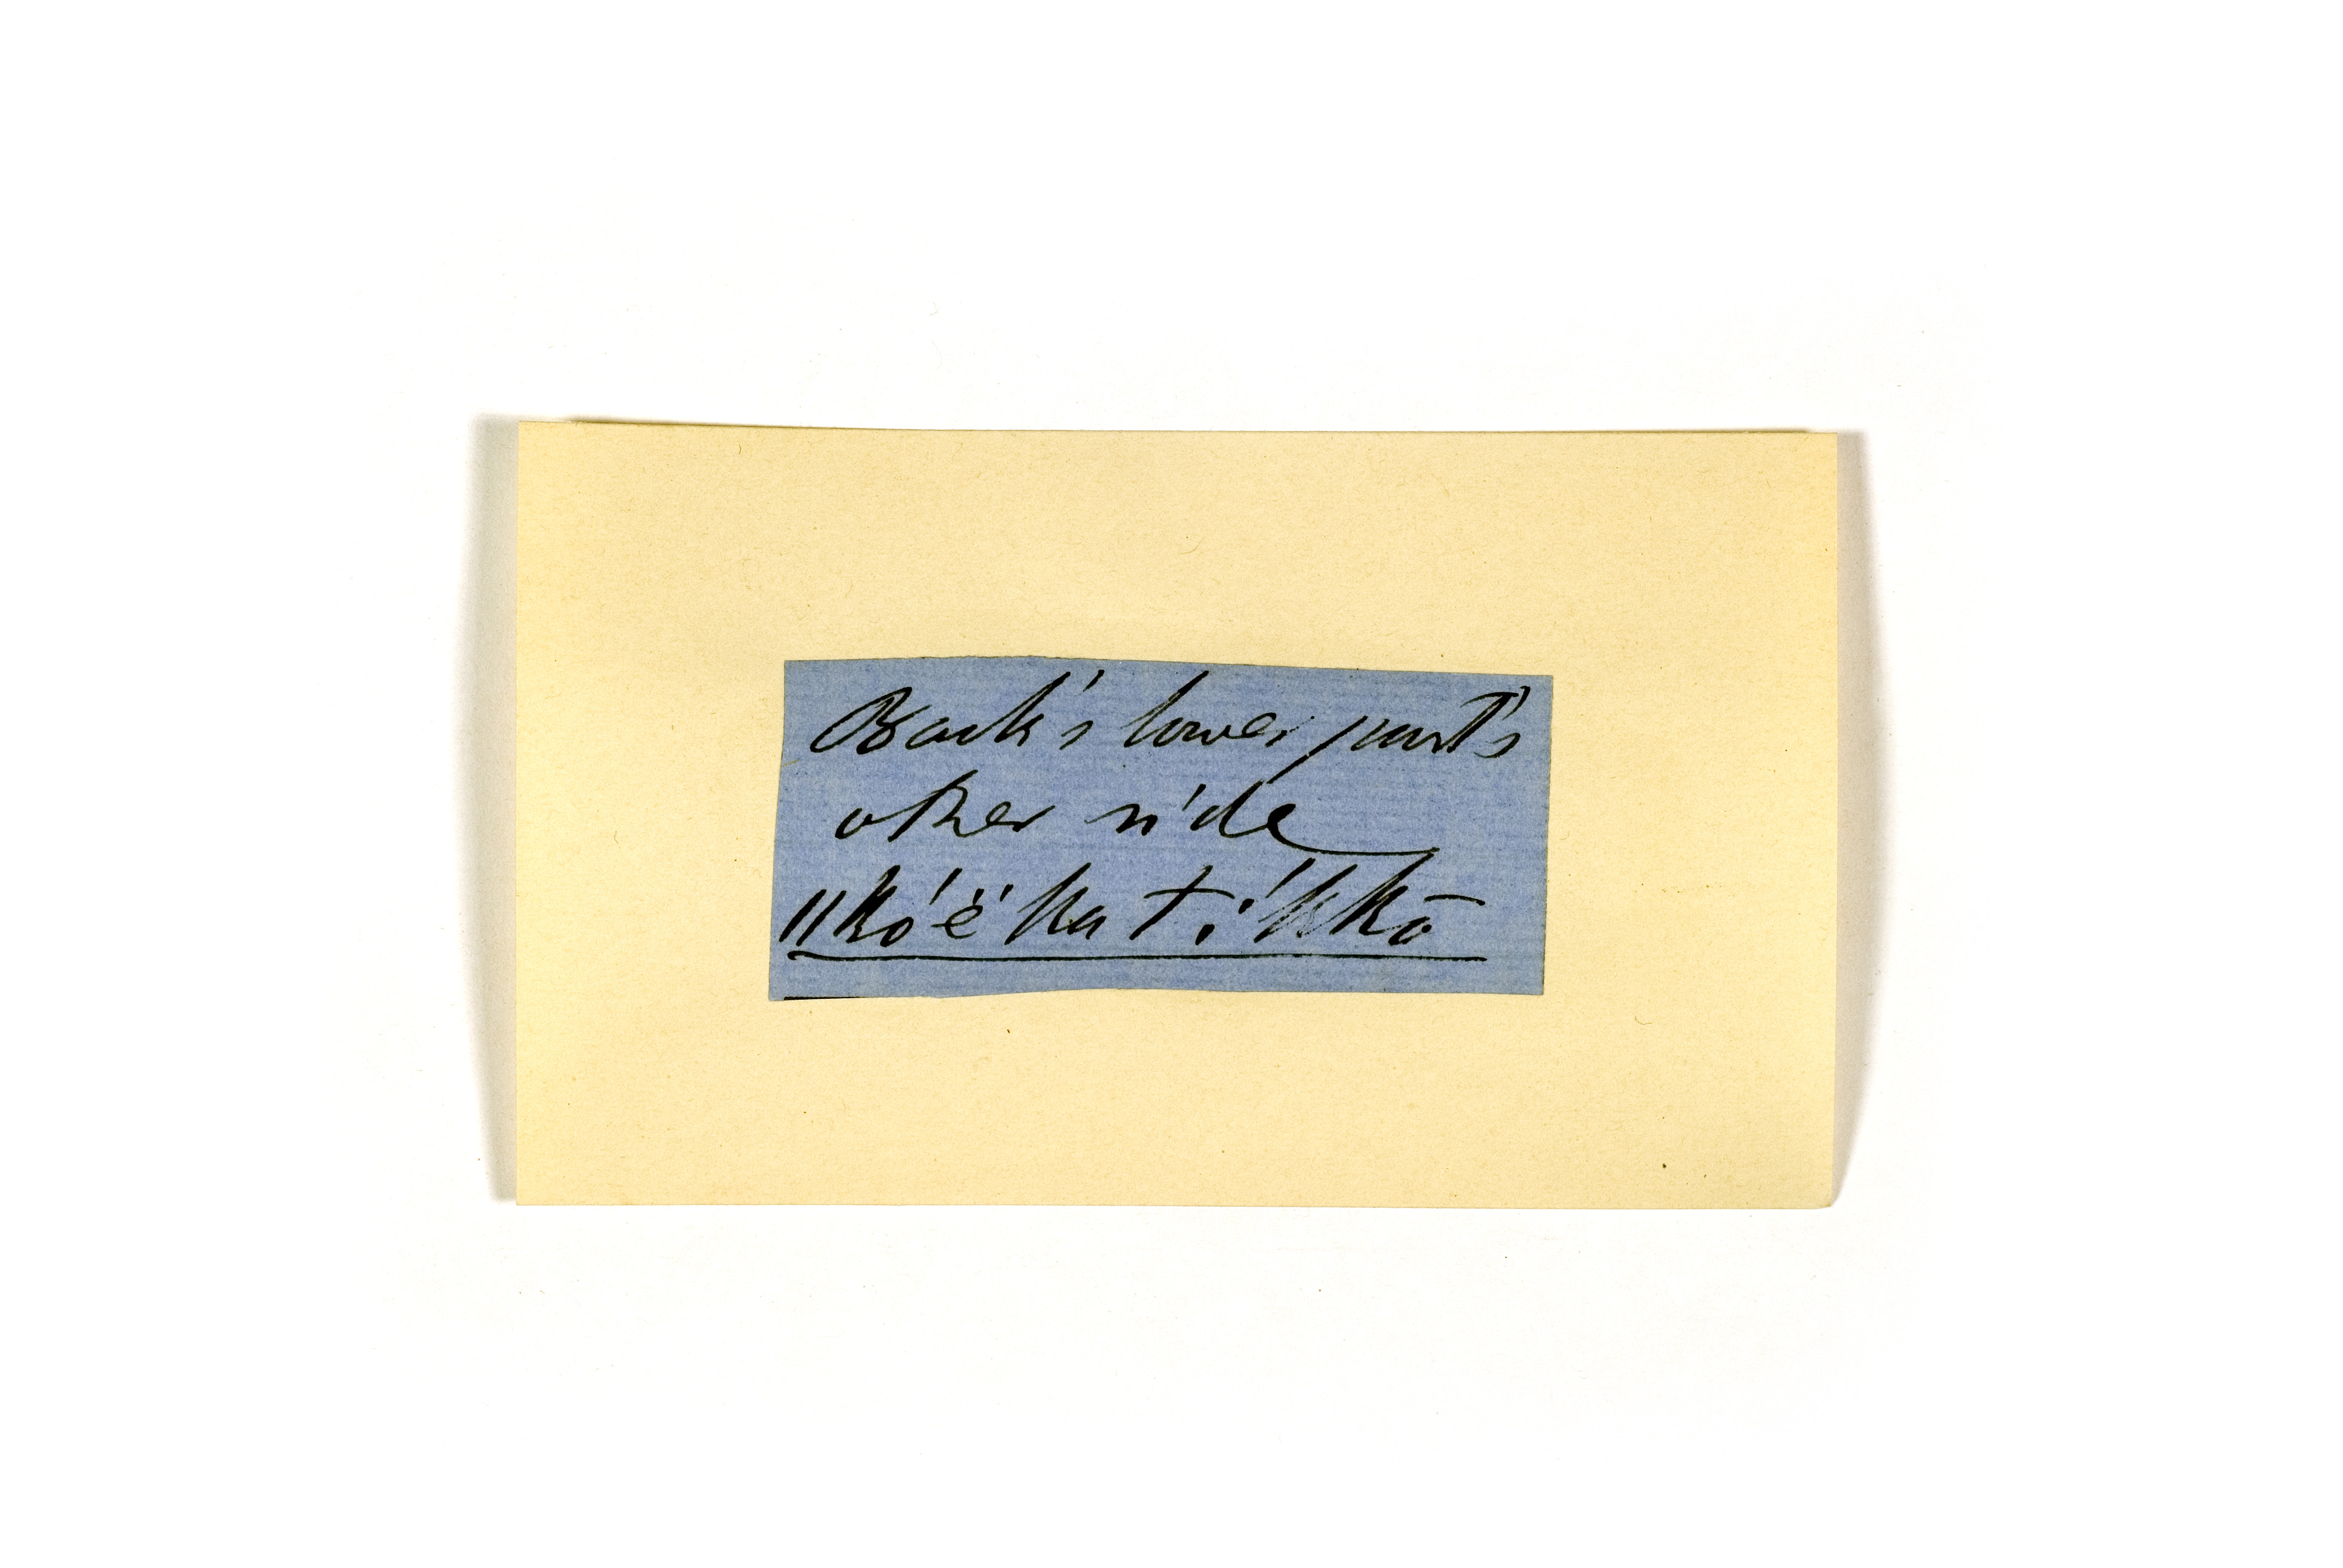 Back's lower part's
other side
||kó ĕ́ ka t í kkō